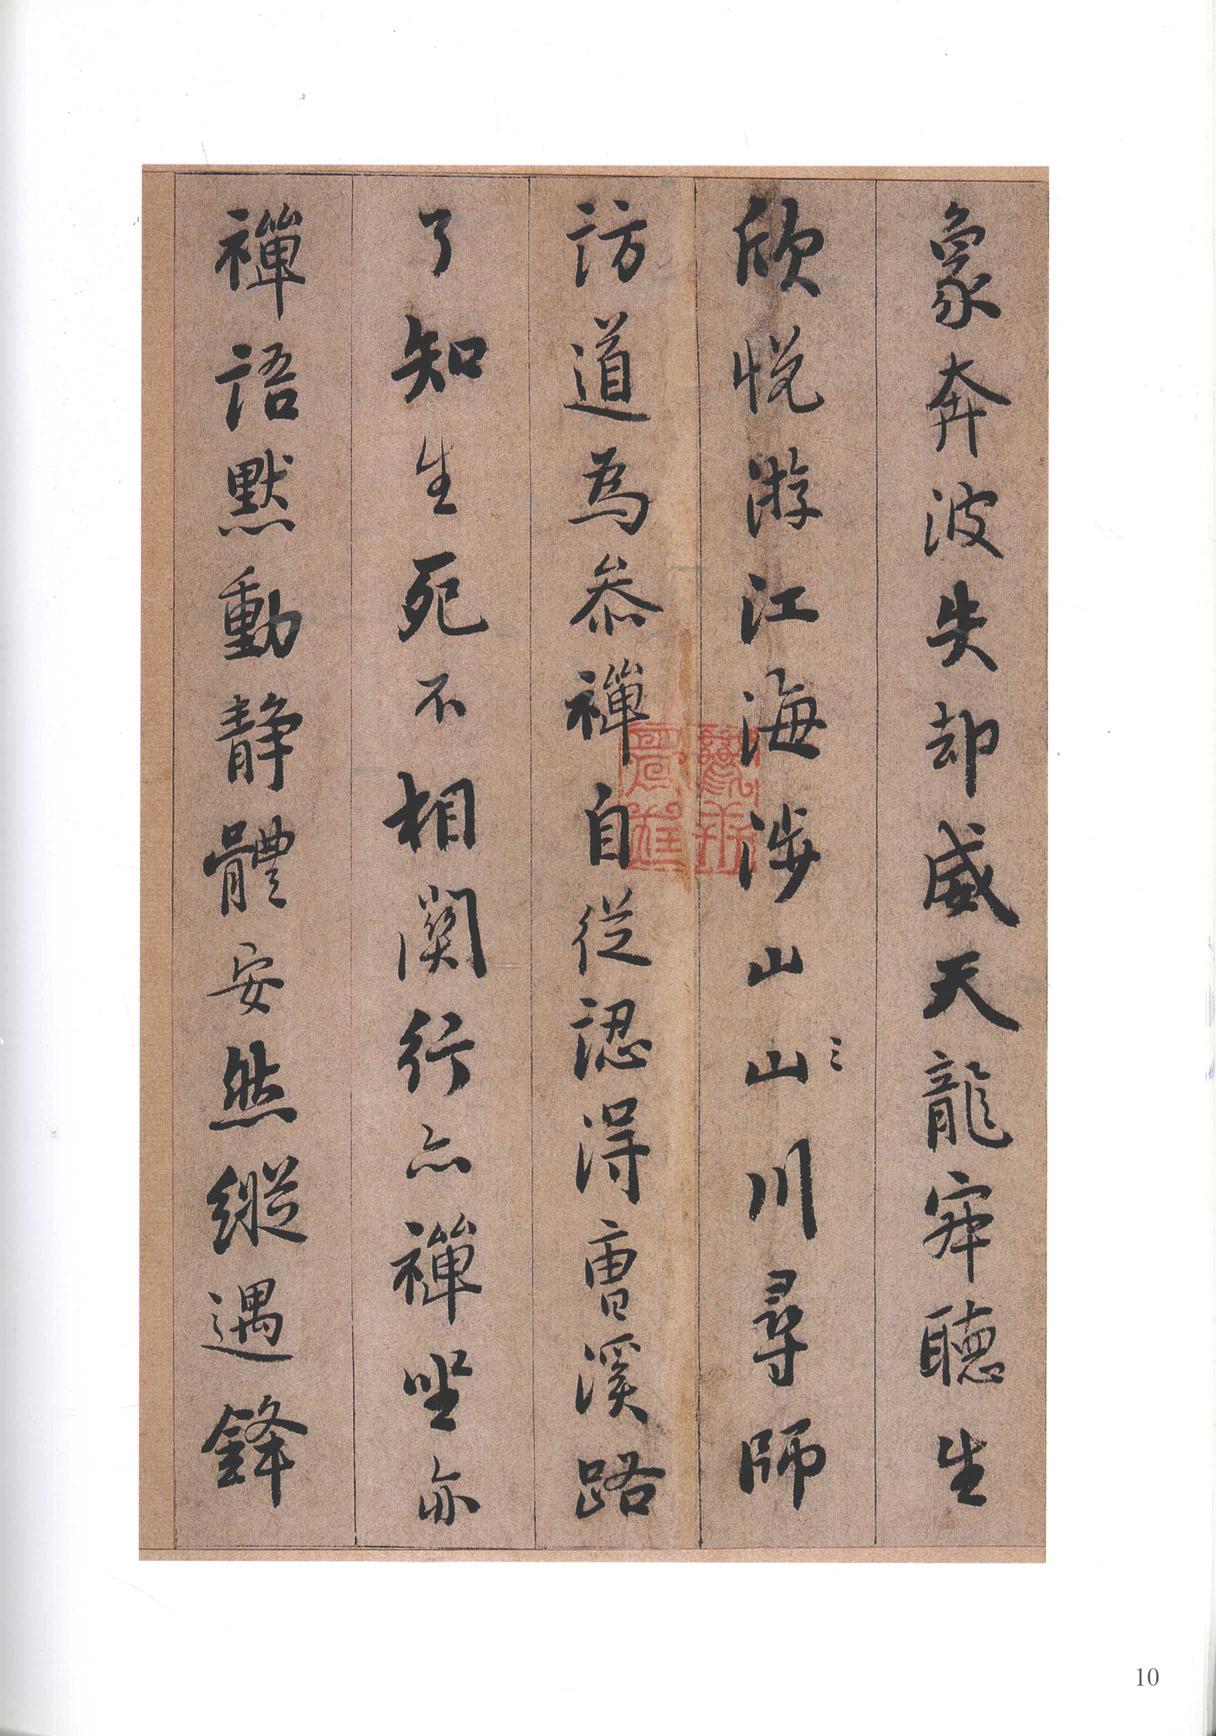 象奔波失却威天龍寂聽生
欣悅游江海涉山山川尋師
訪道為叅禪自從認得曹溪路
了知生死不相關行亦禪坐亦
禪語默動静體安然縱遇鋒
10